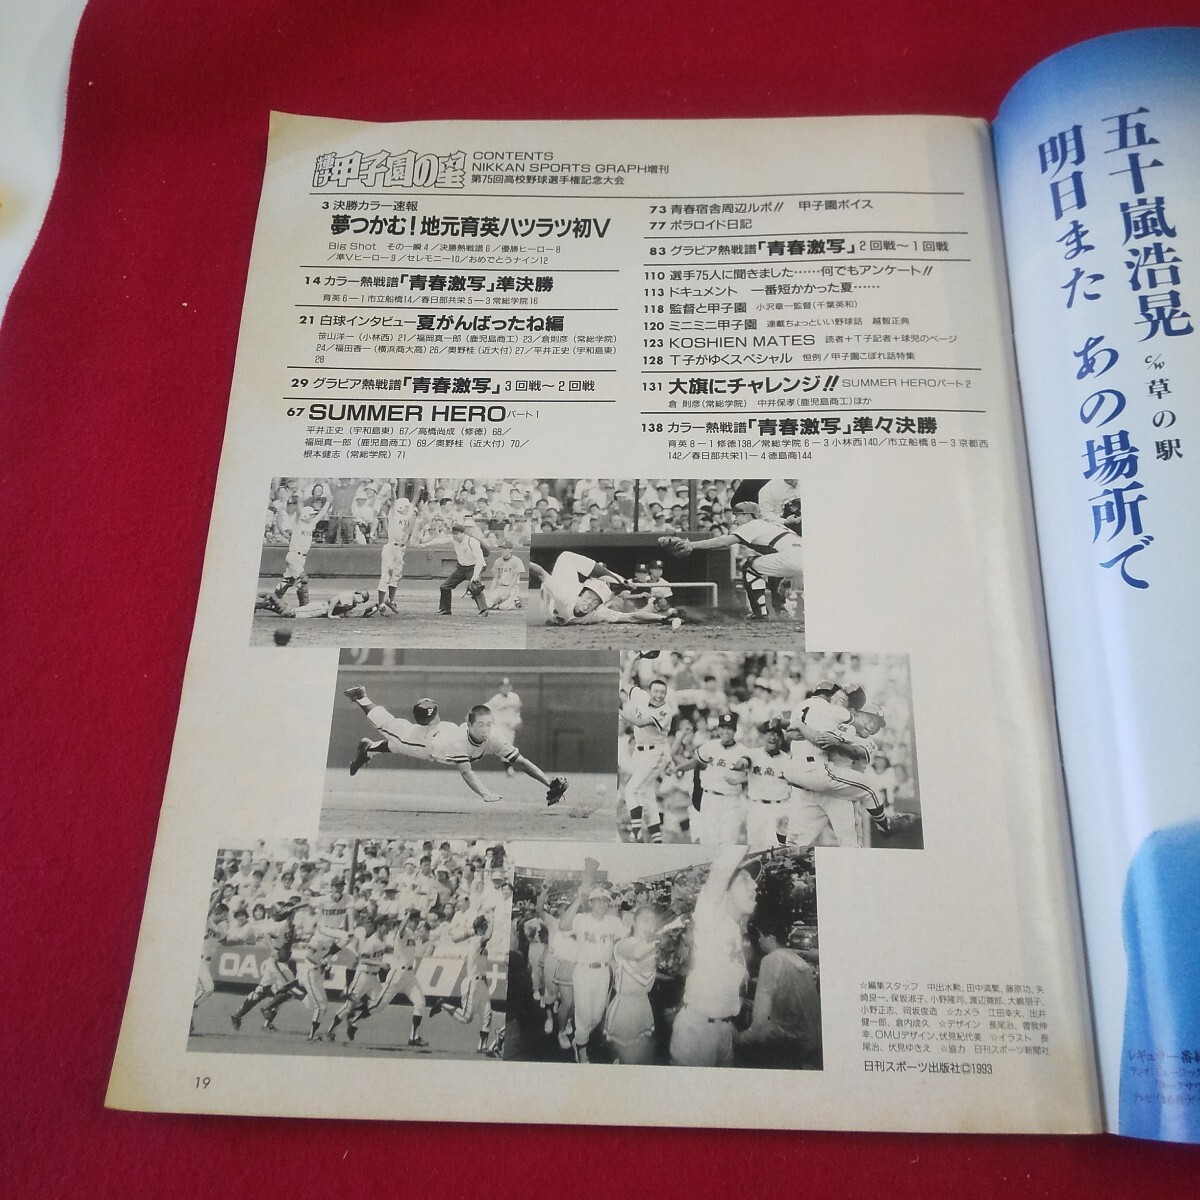 輝け甲子園の星
CONTENTS
NIKKAN SPORTS GRAPH増刊
第75回高校野球選手権記念大会
3 決勝カラー速報
夢つかむ!地元育英ハツラツ初V
Big Shot その一瞬4/決勝熱戦譜6/優勝ヒーロー8
/準Vヒーロー9/セレモニー10/おめでとうナイン12
14 カラー熱戦譜「青春激写」準決勝
育英6―1市立船橋14/春日部共栄5―3常総学院16
21 白球インタビュー夏がんばったね編
笹山洋一(小林西)21/福岡真一郎(鹿児島商工)23/倉則彦(常総学院)
24/福田香一(横浜商大高)26/奥野桂(近大付)27/平井正史(宇和島東)
28
29 グラビア熱戦譜「青春激写」3回戦〜2回戦
67 SUMMER HEROパート1
平井正史(宇和島東)67/高橋尚成(修徳)68/
福岡真一郎(鹿児島商工)69/奥野桂(近大付)70/
根本健志(常総学院)71
73 青春宿舎周辺ルポ!! 甲子園ボイス
77 ポラロイド日記
83 グラビア熱戦譜「青春激写」2回戦〜1回戦
110 選手75人に聞きました……何でもアンケート!!
113 ドキュメント 一番短かかった夏……
118 監督と甲子園 小沢章一監督(千葉英和)
120 ミニミニ甲子園 連載ちょっといい野球話 越智正典
123 KOSHIEN MATES 読者+T子記者+球児のページ
128 T子がゆくスペシャル 恒例/甲子園こぼれ話特集
131 大旗にチャレンジ!! SUMMER HEROパート2
倉 則彦(常総学院) 中井保孝(鹿児島商工)ほか
138 カラー熱戦譜「青春激写」準々決勝
育英8―1修徳138/常総学院6―3小林西140/市立船橋8―3京都西
142/春日部共栄11―4徳島商144
☆編集スタッフ 中出水勲、田中満繁、藤原功、矢
崎良一、保坂淑子、小野隆司、渡辺寛郎、大嶋朋子、
小野正志、岡坂俊造 ☆カメラ 江田幸夫、出井
健一郎、倉内成久 ☆デザイン 長尾治、曽我伸
幸、OMUデザイン、伏見紀代美 ☆イラスト 長
尾治、伏見ゆきえ ☆協力 日刊スポーツ新聞社
日刊スポーツ出版社©1993
19
五十嵐浩晃
明日また あの場所で
c/w 草の駅